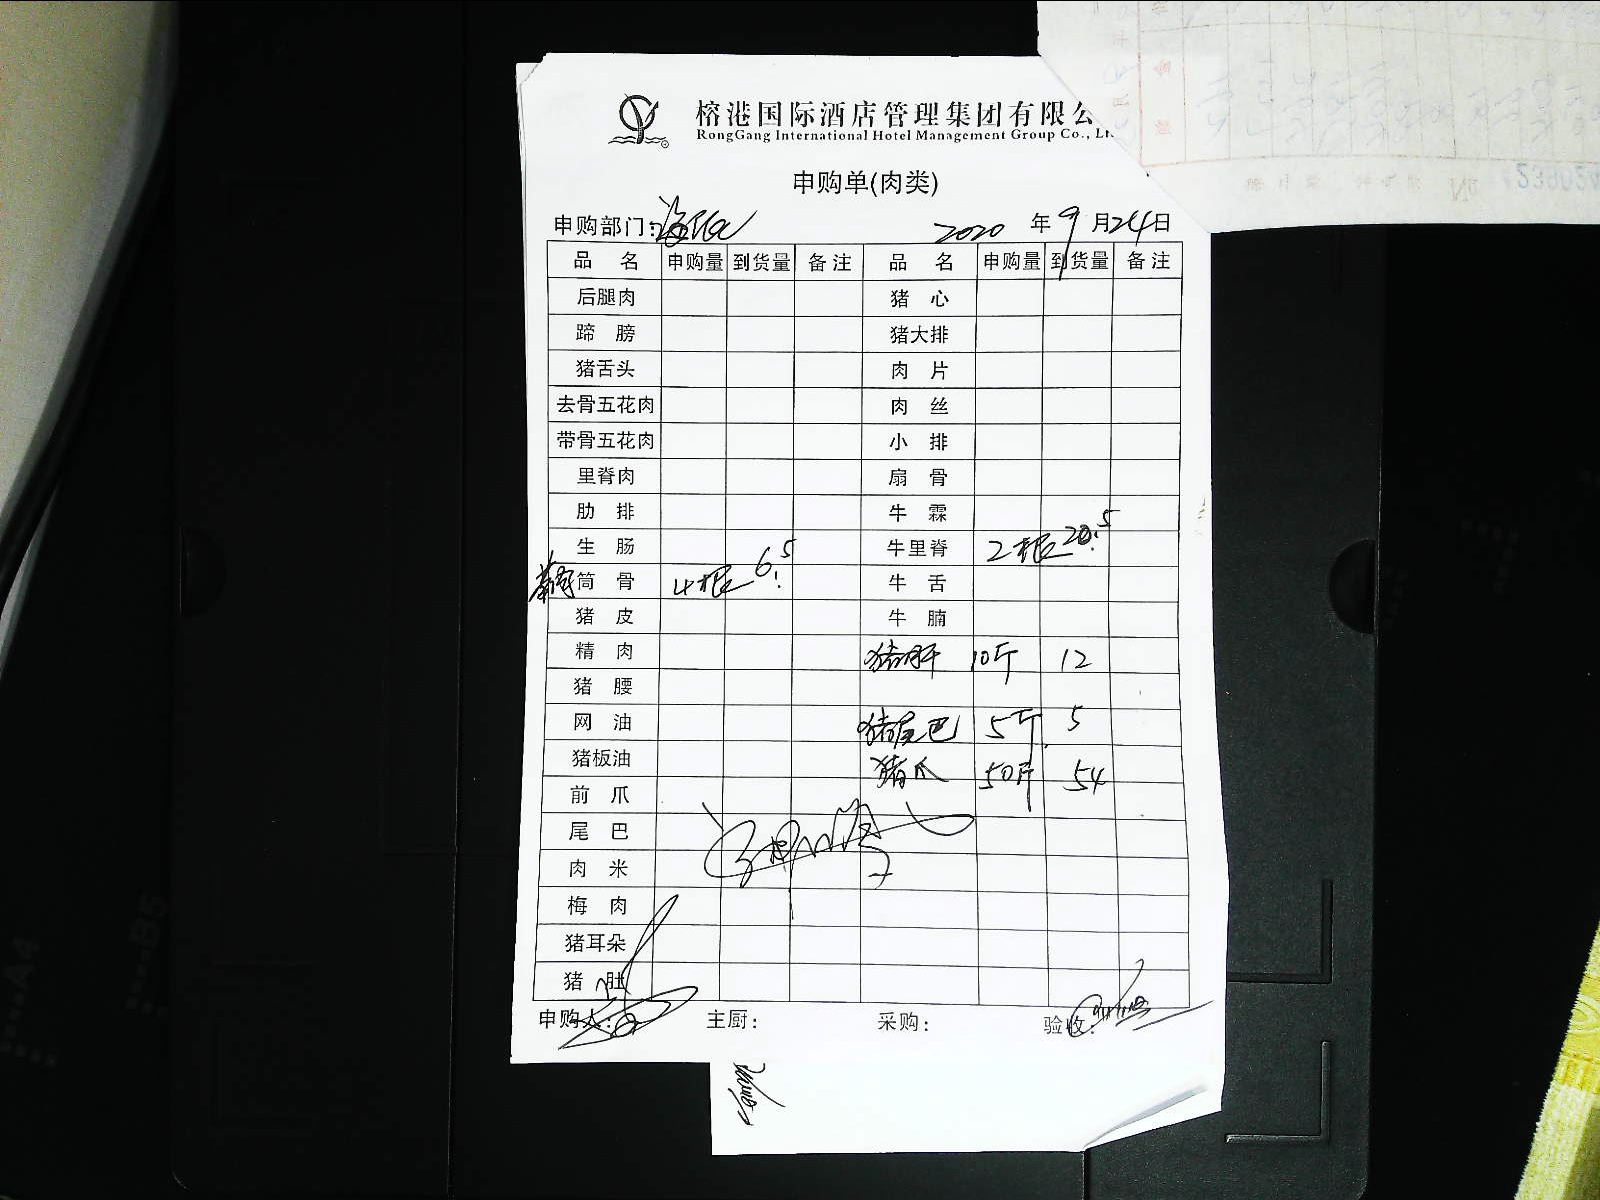 榕港国际酒店管理集团有限公
RongGang International Hotel Management Group Co., Lt
申购单(肉类)
申购部门: 2020 年 9 月 24 日
品 名 申购量 到货量 备注 品 名 申购量 到货量 备注
后腿肉 猪 心
蹄 膀 猪大排
猪舌头 肉 片
去骨五花肉 肉 丝
带骨五花肉 小 排
里脊肉 扇 骨
肋 排 牛 霖
生 肠 牛里脊 2根 20.5
筒 骨 4根 6.5 牛 舌
猪 皮 牛 腩
精 肉 猪肝 10斤 12
猪 腰
网 油 猪尾巴 5斤 5
猪板油 猪爪 50斤 54
前 爪
尾 巴
肉 米
梅 肉
猪耳朵
猪 肚
申购人: 主厨: 采购: 验收:
A4
B5